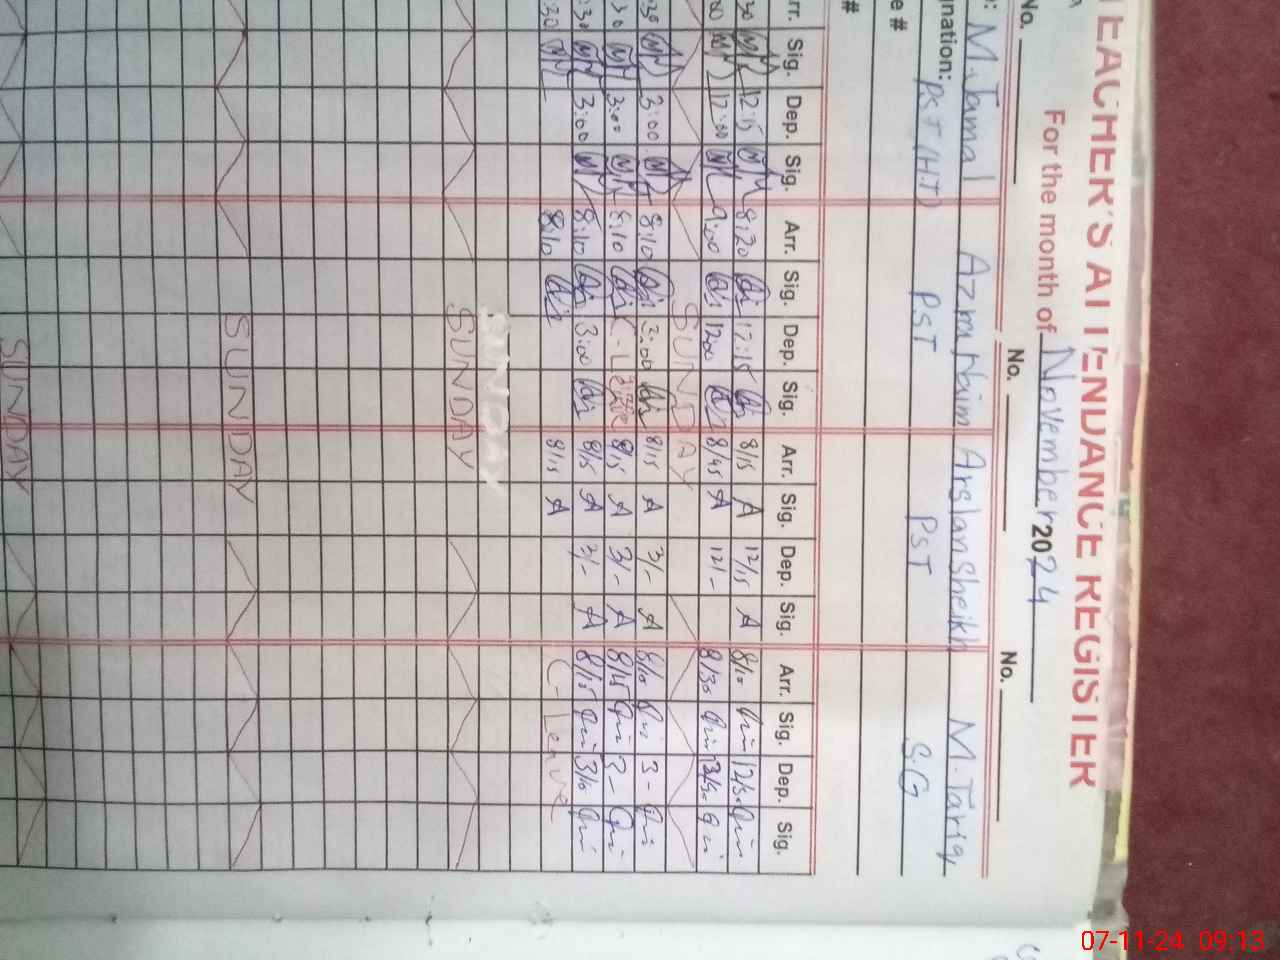 TEACHER'S ATTENDANCE REGISTER
For the month of November 2024
No. No. No.
M. Jamal Azra Naim Arslan Sheikh M. Tariq
nation: PST (HT) PST PST S.G
e#
#
rr. Sig. Dep. Sig. Arr. Sig. Dep. Sig. Arr. Sig. Dep. Sig. Arr. Sig. Dep. Sig.
30 12:15 8:20 12:15 8/15 A 12/15 A 8/10
00 12:00 9:00 12:00 8/45 A 12/- 8/30
SUNDAY
30 3:00 8:10 3:00 8/15 A 3/- A 8/10 3-
30 3:00 8:10 8/15 A 3/- A 8/15 3-
:30 3:00 8:10 3:00 8/15 A 3/- A 8/15 3/10
:30 8:10 8/15 A C-Leave
SUNDAY
SUNDAY
SUNDAY
SUNDAY
07-11-24 09:13